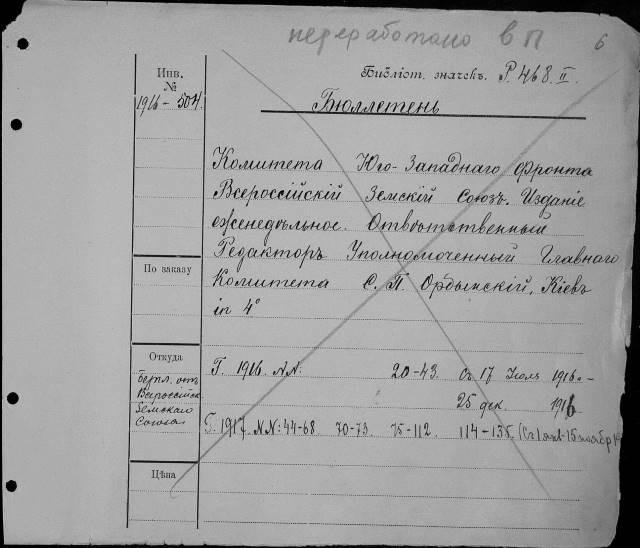 переработано в П 6
Инв. №
1916 - 504
Библіот. значекъ. Р. 468 II.
Бюллетень
Комитета Юго-Западнаго Фронта
Всероссійскій Земскій Союзъ. Изданіе
еженедѣльное. Отвѣтственный
Редакторъ Уполномоченный Главнаго
Комитета С. П. Ордынскій, Кіевъ
in 4°
По заказу
Откуда
Безпл. отъ
Всероссійск.
Земскаго
Союза
Г. 1916. NN. 20-43. съ 17 Іюля 1916. -
25 дек. 1916
Г. 1917. NN: 44-68 70-73 75-112. 114-135. (съ 1 янв-15 ноябр
Цѣна